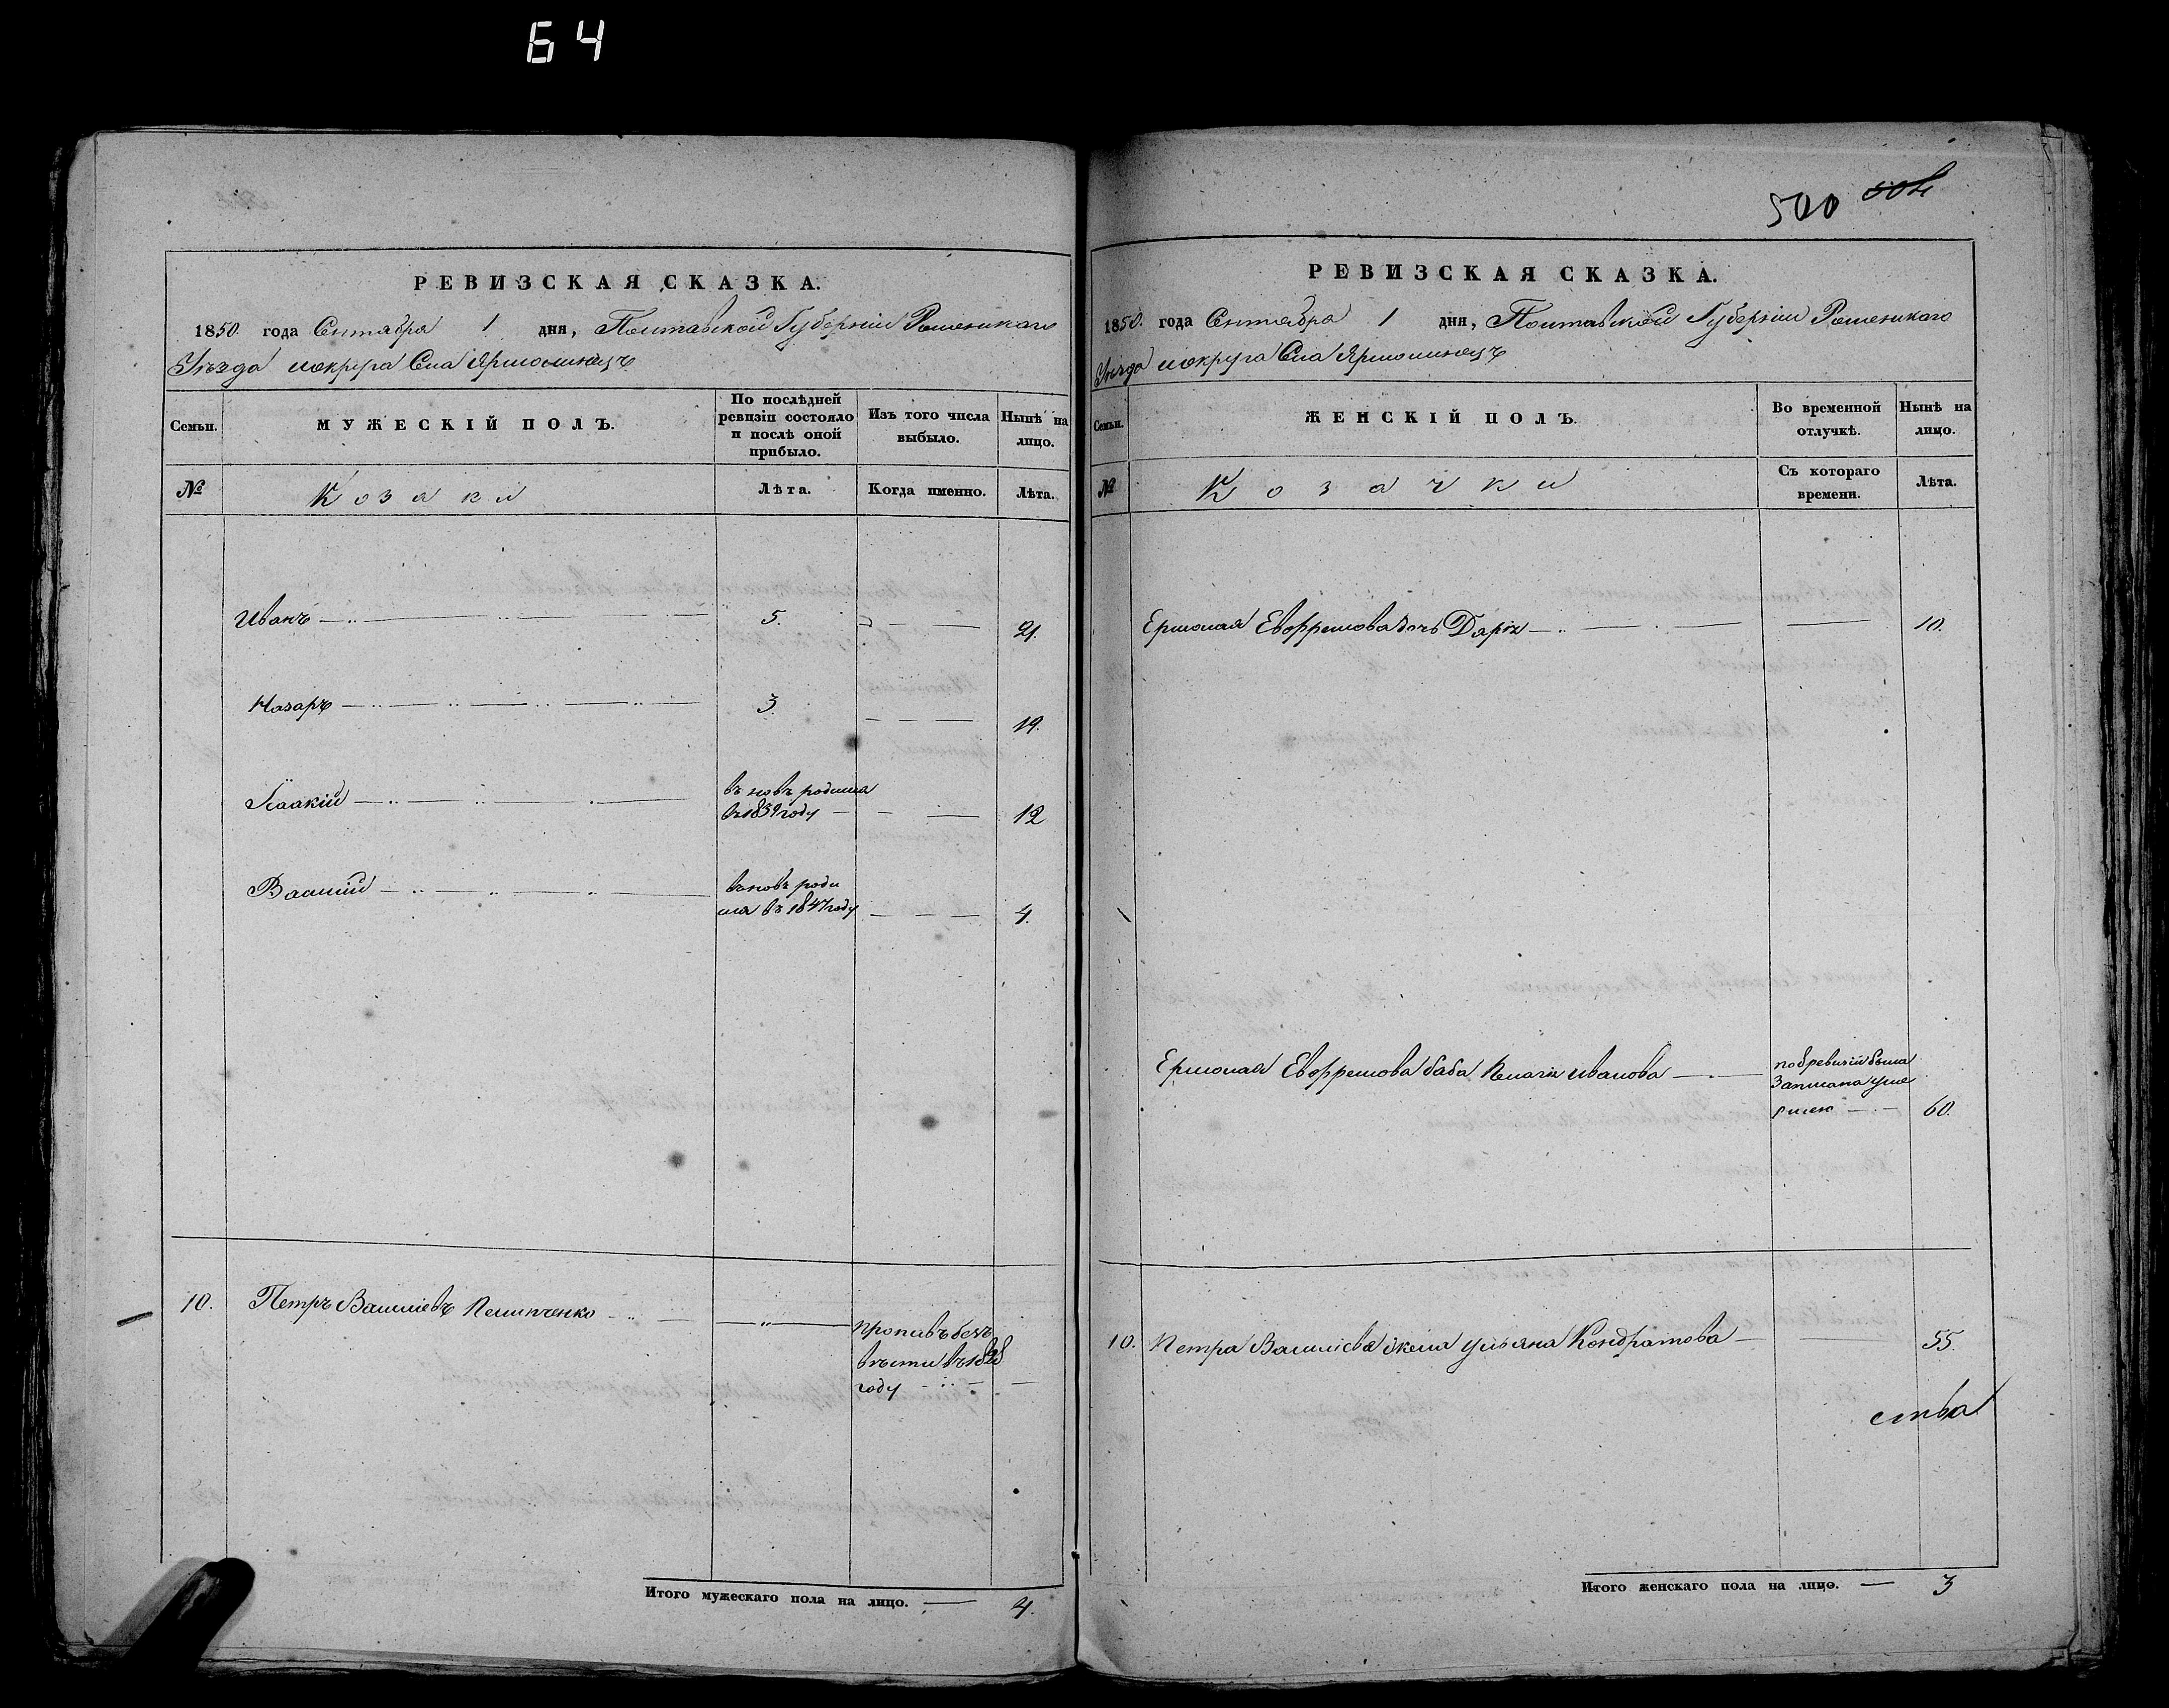 64
РЕВИЗСКАЯ СКАЗКА.
1850. года Сентября 1 дня, Полтавской Губерніи Роменскаго
Уѣзда
Семьи. МУЖЕСКІЙ ПОЛЪ. По послѣдней ревизіи состояло и послѣ оной прибыло. Изъ того числа выбыло. Нынѣ на лицо.
№ Козаки Лѣта. Когда именно. Лѣта.
Иванъ 5. 21.
Назаръ 3. 19.
Ісаакій въ новъ родился
въ 1839 году 12
Василій вновъ роди
лся въ 1847 году 4.
10. Петръ Василіевъ Пелипченко
пропавъ безъ
вѣсти въ 1828
году
Итого мужескаго пола на лицо. 4.
500 504
РЕВИЗСКАЯ СКАЗКА.
1850. года Сентября 1 дня, Полтавской Губерніи Роменскаго
Уѣзда
Семьи. ЖЕНСКІЙ ПОЛЪ. Во временной отлучкѣ. Нынѣ на лицо.
№ Козачки Съ котораго времени. Лѣта.
Ермолая Евфремова дочь Дарія 10.
Ермолая Евфремова баба Пелагія Иванова по 8 ревизіи была
записана уме
ршею 60.
10. Петра Василіева жена Ульяна Кондратова 55.
ства
Итого женскаго пола на лицо. 3